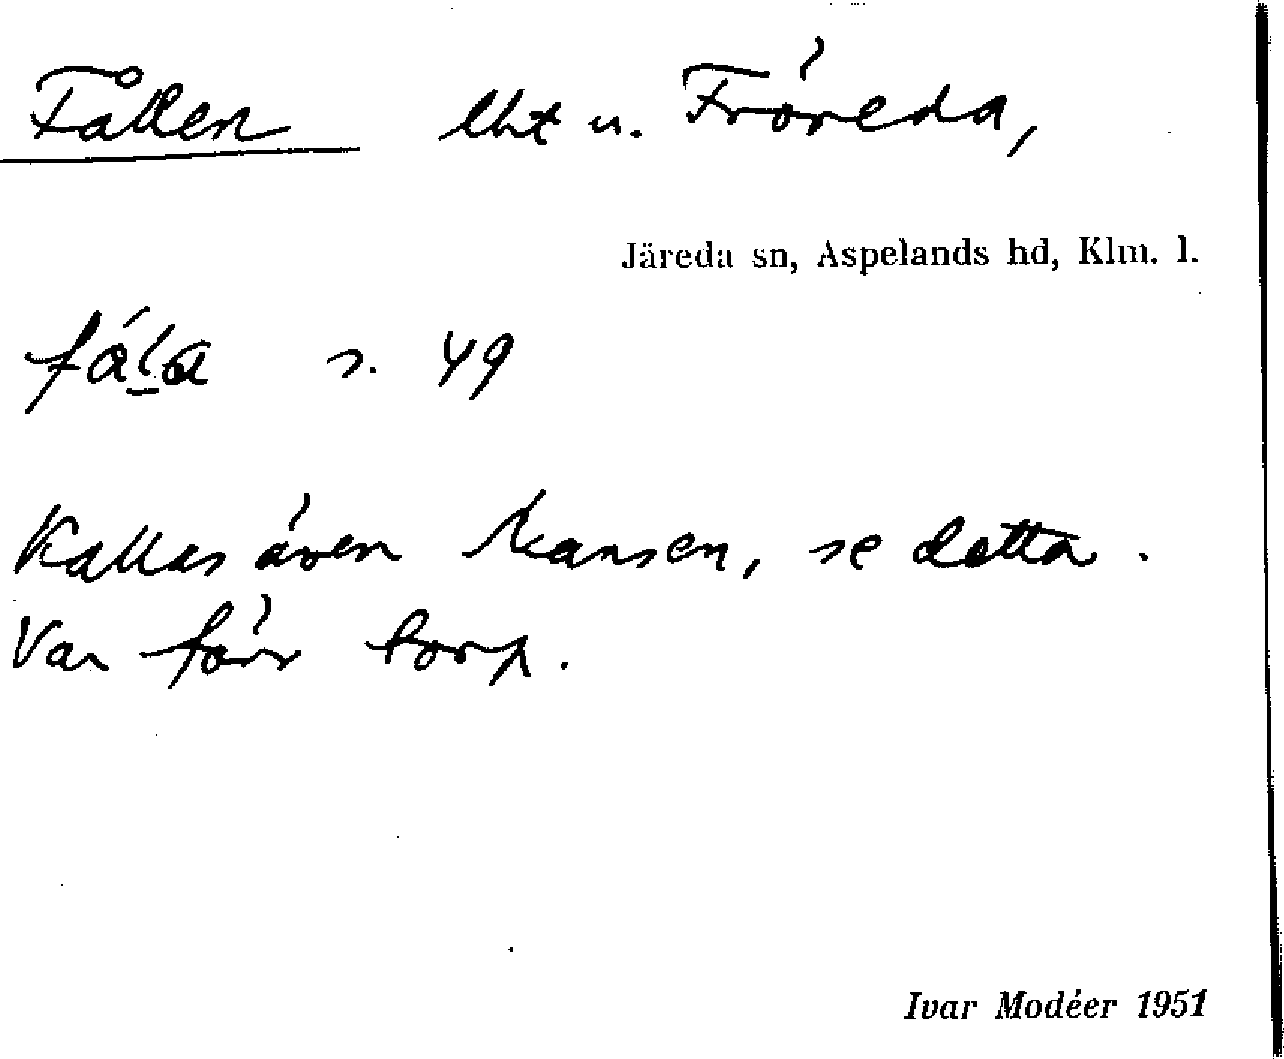 Fållen lht u. Fröreda,
Järeda sn, Aspelands hd, Klm. l.
s. 49
Kallas även Skansen, se detta.
Var förr torp.
Ivar Modéer 1951